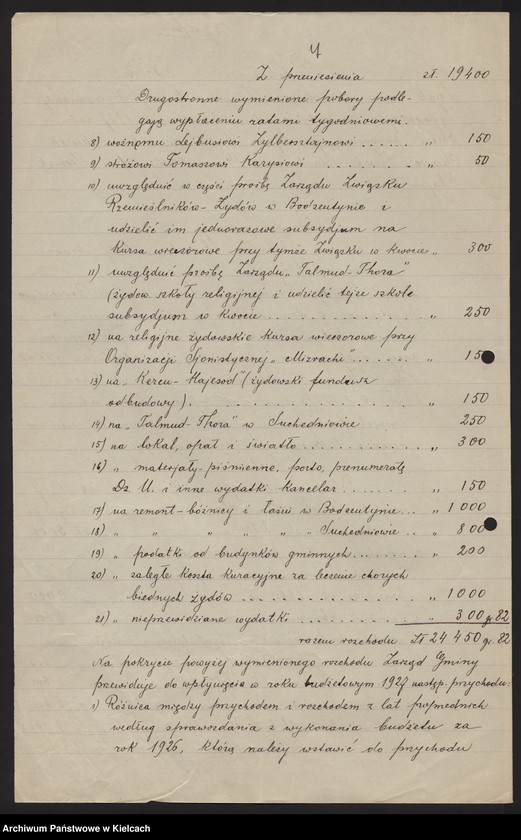 4
Z przeniesienia zł. 19400
Drugostronne wymienione pobory podle-
gają wypłaceniu ratami tygodniowemi.
8) woźnemu Lejbusiowi Zylbersztajnowi ..... " 150
9) stróżowi Tomaszowi Karysiowi ....... " 50
10) uwzględnić w części prośbę Zarządu Związku
Rzemieślników-Żydów w Bodzentynie i
udzielić im jednorazowe subsydjum na
Kursa wieczorowe przy tymże Związku w kwocie " 300
11) uwzględnić prośbę Zarządu "Talmud-Thora"
(żydow. szkoły religijnej i udzielić tejże szkole
subsydjum w kwocie .............. " 250
12) na religijne żydowskie kursa wieczorowe przy
Organizacji Sjonistycznej "Mizrachi" ...... " 15
13) na "Keren-Hajesod" (żydowski fundusz
odbudowy). .............. " 150
14) na "Talmud-Thora" w Suchedniowie 250
15) na lokal, opał i światło .......... " 300
16) " materjały-piśmienne, porto, prenumeratę
Dz. U. i inne wydatki kancelar ........ " 150
17) na remont-bóżnicy i łaźni w Bodzentynie... " 1000
18) " " " " " Suchedniowie .. " 800
19) " podatki od budynków gminnych ....... " 200
20) " zaległe koszta kuracyjne za leczenie chorych
biednych żydów ................ " 1000
21) " nieprzewidziane wydatki ........... " 300 gr 82
razem rozchodu Zł 24450 gr. 82
Na pokrycie powyżej wymienionego rozchodu Zarząd Gminy
przewiduje do wpłynięcia w roku budżetowym 1927 następ. przychodu:
1) Różnica między przychodem i rozchodem z lat poprzednich
według sprawozdania z wykonania budżetu za
rok 1926, którą należy wstawić do przychodu
Archiwum Państwowe w Kielcach